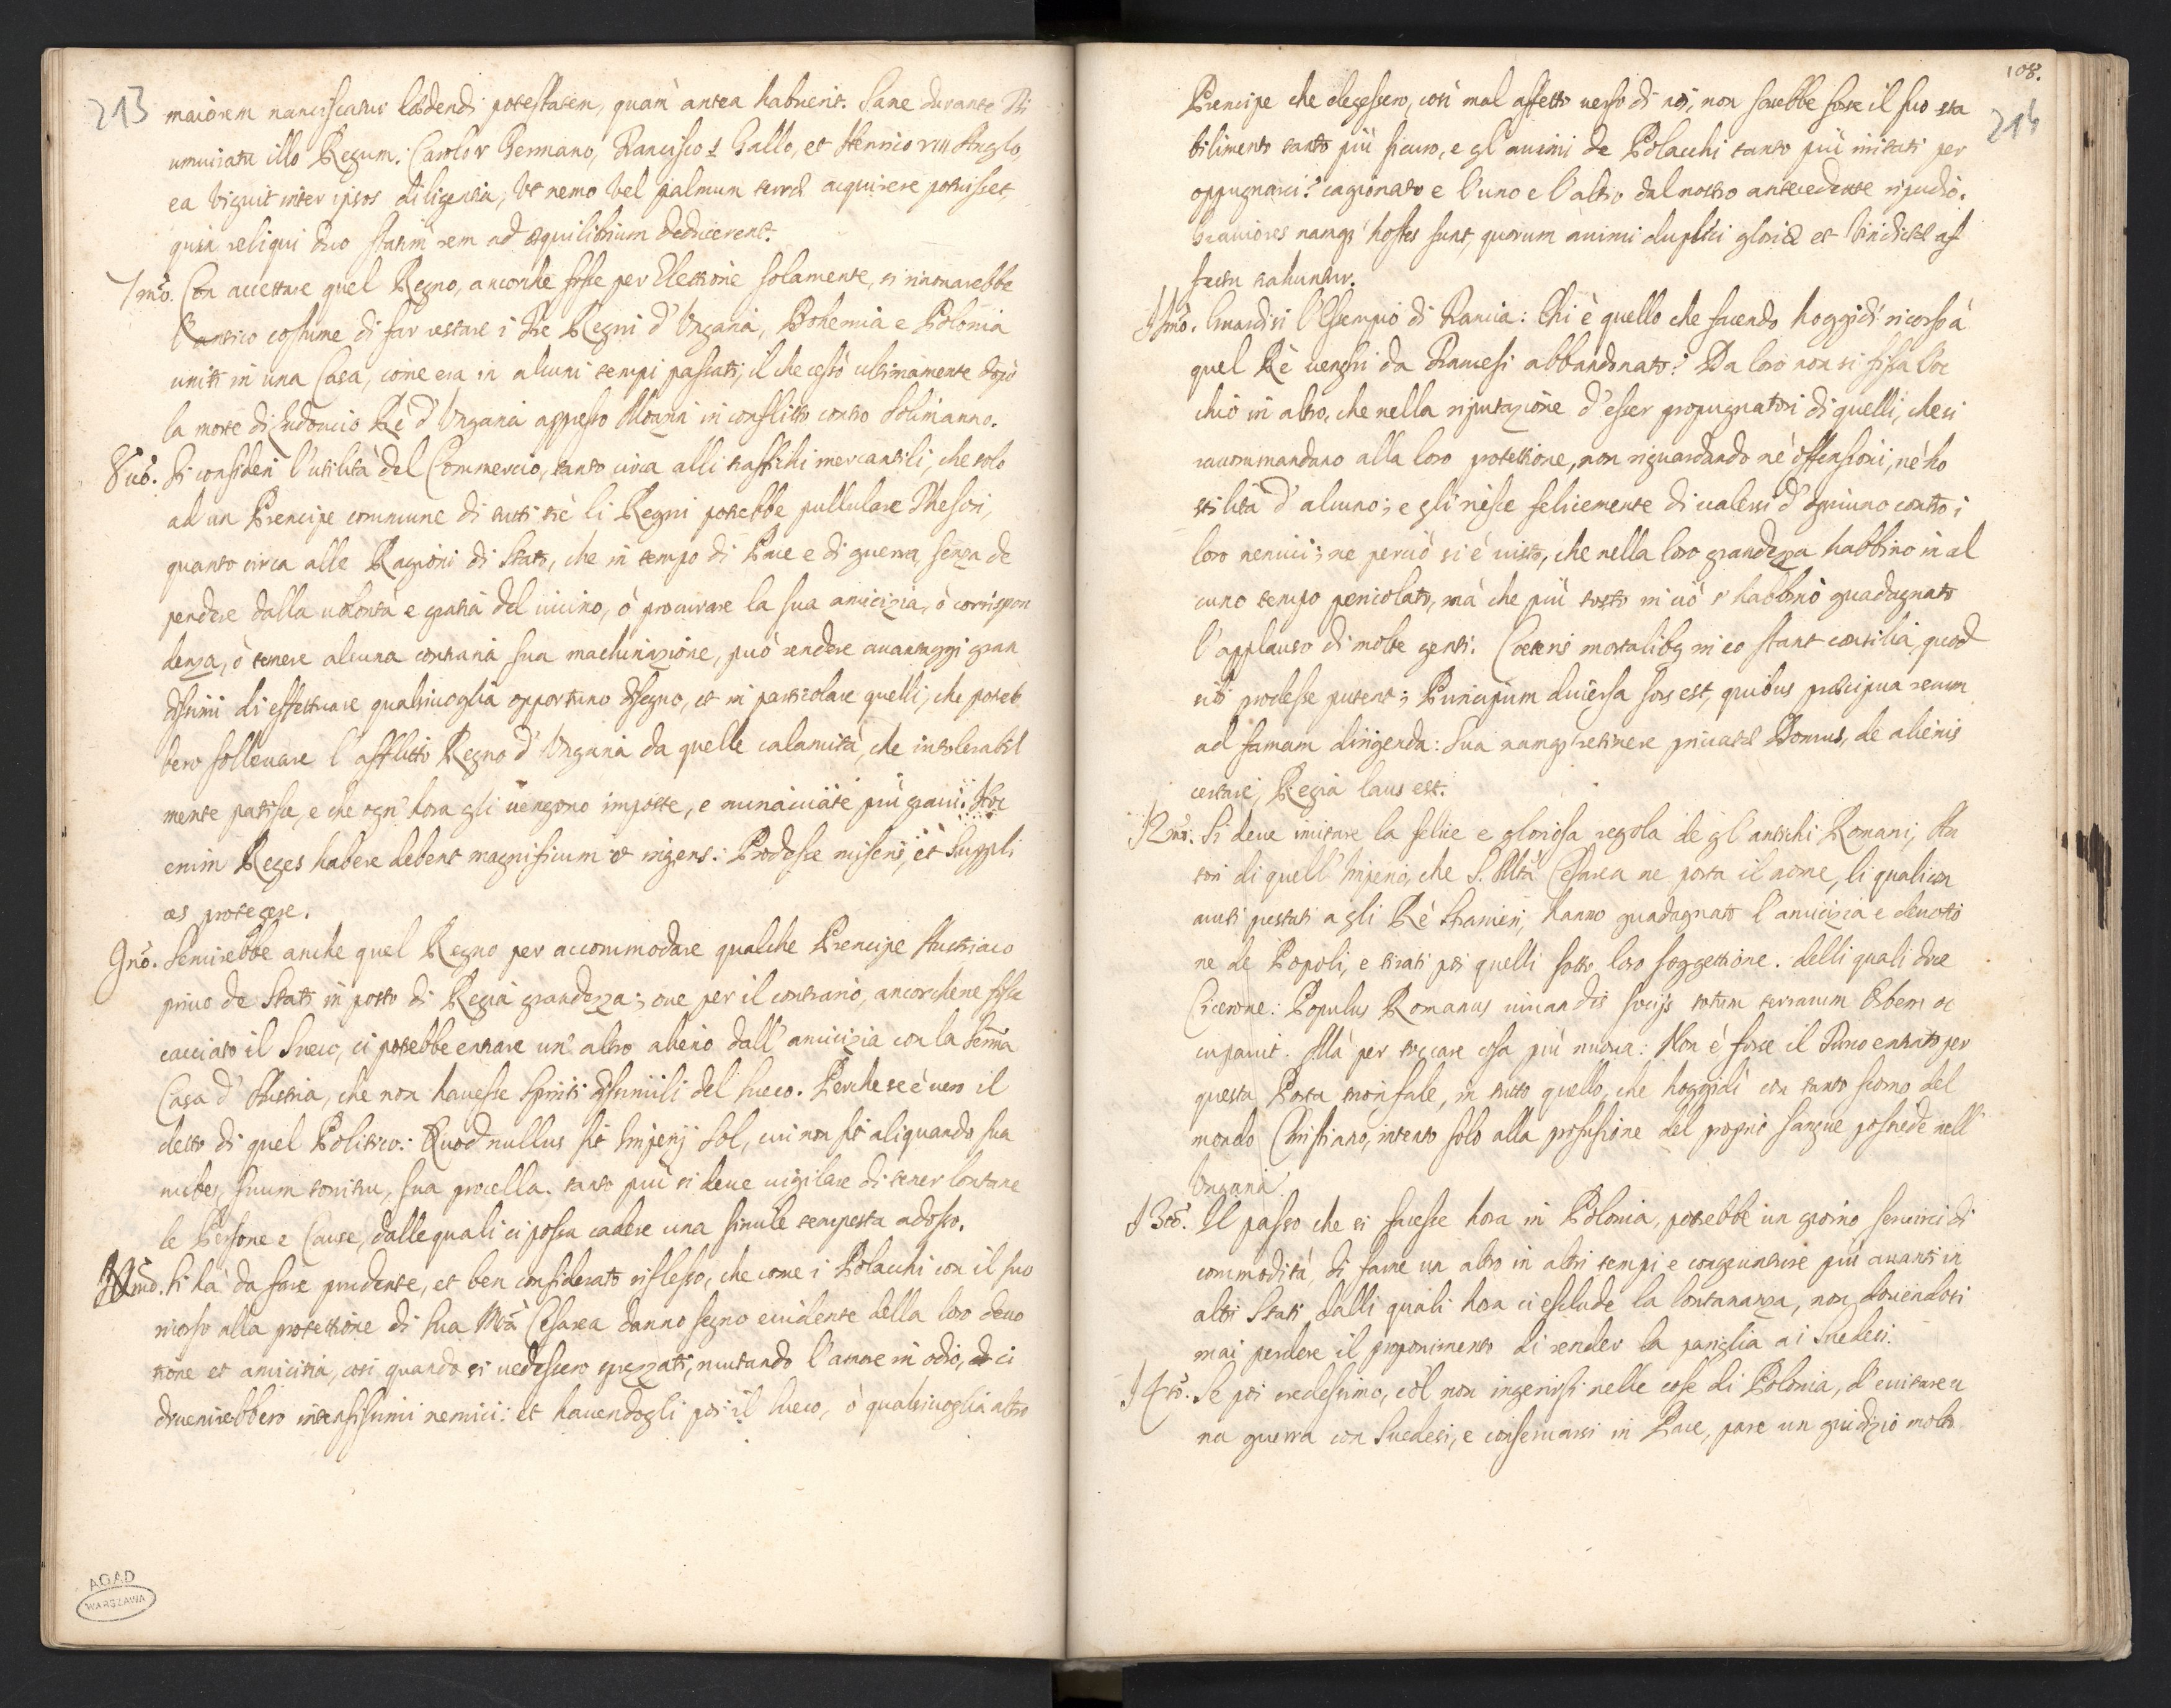 213
maiorem nanciscatur lædendi potestatem, quam antea habuerit. Sane durante Tri
umuiratu illo Regum: Carolo V Germano, Francisco I Gallo, et Henrico VIII Anglo,
ea viguit inter ipsos diligentia, Vt nemo Vel palmum terræ acquirere potuisset,
quin reliqui duo statim rem ad æquilibrium deducerent.
7mo. Con accettare quel Regno, ancorche fosse per Elettione solamente, si rinouarebbe
l'antico costume di far restare i Tre Regni d'Ungaria, Bohemia e Polonia
uniti in una Casa, come era in alcuni tempi passati, il che cessò ultimamente dopò
la morte di Ludouico Rè d'Ungaria appresso Moazia in conflitto contro Solimanno.
8uo. Si consideri l'utilità del Commercio, tanto circa alli traffichi mercantili, che solo
ad un Prencipe commune di tutti trè li Regni potrebbe pullulare Thesori,
quanto circa alle Ragioni di Stato, che in tempo di Pace e di guerra, senza de
pendere dalla uolontà e gratia del uicino, ò procurare la sua amicizia, ò corrispon
denza, ò temere alcuna contraria sua machinazione, può rendere auantaggi gran
dissimi di effettuare qualsiuoglia opportuno disegno, et in particolare quelli, che potreb
bero solleuare l'afflitto Regno d'Ungaria da quelle calamità, che intolerabil
mente patisce, e che ogn'hora gli uengono imposte, e minacciate più graui: Hoc
enim Reges habere debent magnificum et ingens: Prodesse miseris, et Suppli
ces protegere.
9no. Seruirebbe anche quel Regno per accommodare qualche Prencipe Austriaco
priuo de Stati in posto di Regia grandezza; oue per il contrario, ancorche ne fosse
cacciato il Sueco, ci potrebbe entrare un'altro alieno dall'amicizia con la Serma
Casa d'Austria, che non hauesse Spiriti dissimili del Sueco. Perche se è uero il
detto di quel Politico: Quod nullus sit Imperij Sol, cui non sit aliquando sua
nubes, suum tonitru, sua procella. tanto più si deue uigilare di tener lontane
le Persone e Cause, dalle quali ci possa cadere una simile tempesta adosso.
Xmo. Si hà da fare prudente, et ben considerato riflesso, che come i Polacchi con il suo
ricorso alla protettione di Sua Mtà Cesarea danno segno euidente della loro deuo
tione et amicitia, così quando si uedessero sprezzati, mutando l'amore in odio, ci
diuenirebbero intensissimi nemici: et hauendogli poi il Sueco, ò qualsiuoglia altro
AGAD
WARSZAWA
108.
214
Prencipe che elegessero, così mal affetto uerso di noi, non sarebbe forse il suo sta
bilimento tanto più sicuro, e gl'animi de Polacchi tanto più irritati per
oppugnarci? cagionato e l'uno e l'altro dal nostro antecedente ripudio.
Grauiores namq hostes sunt, quorum animi duplici gloriæ et Vindictæ af
fectu trahuntur.
11mo. Guardisi l'Esempio di Francia: Chi è quello che facendo hoggidi ricorso à
quel Rè uenghi da Francesi abbandonato? Da loro non si fissa l'oc
chio in altro, che nella riputazione d'esser propugnatori di quelli, che si
raccommandano alla loro protettione, non riguardando nè offensioni, nè ho
stilità d'alcuno; e gli riesce felicemente di ualersi d'ogniuno contro i
loro nemici; ne perciò si è uisto, che nella loro grandezza habbino in al
cuno tempo pericolato, mà che più tosto in ciò s'habbino guadagnato
l'applauso di molte genti. Coeteris mortalibq in eo stant consilia, quod
sibi prodesse putent; Principum diuersa sors est, quibus præcipua rerum
ad famam dirigenda: Sua namq retinere priuatæ Domus, de alienis
certare, Regia laus est.
12mo. Si deue imitare la felice e gloriosa regola de gl'antichi Romani, Au
tori di quell'Imperio, che S. Mtà Cesarea ne porta il nome, li quali con
aiuti prestati a gli Rè stranieri, hanno guadagnato l'amicizia e deuotio
ne de Popoli, e tirati poi quelli sotto loro soggettione. delli quali dice
Cicerone: Populus Romanus iuuandis socijs totum terrarum Orbem oc
cupauit. Mà per toccare cosa più nuoua: Non è forse il Turco entrato per
questa Porta trionfale, in tutto quello, che hoggidì con tanto scorno del
mondo Christiano, intento solo alla profusione del proprio sangue possiede nell'
Ungaria.
13tio. Il passo che si facesse hora in Polonia, potrebbe un giorno seruirci di
commodità, di farne un altro in altri tempi e congiunture più auanti in
altri Stati dalli quali hora ci esclude la lontananza, non douendosi
mai perdere il proponimento di render la pariglia ai Suedesi.
14to. Se poi credessimo, col non ingerirsi nelle cose di Polonia, d'euitare u
na guerra con Suedesi, e conseruarsi in Pace, pare un giudizio molto